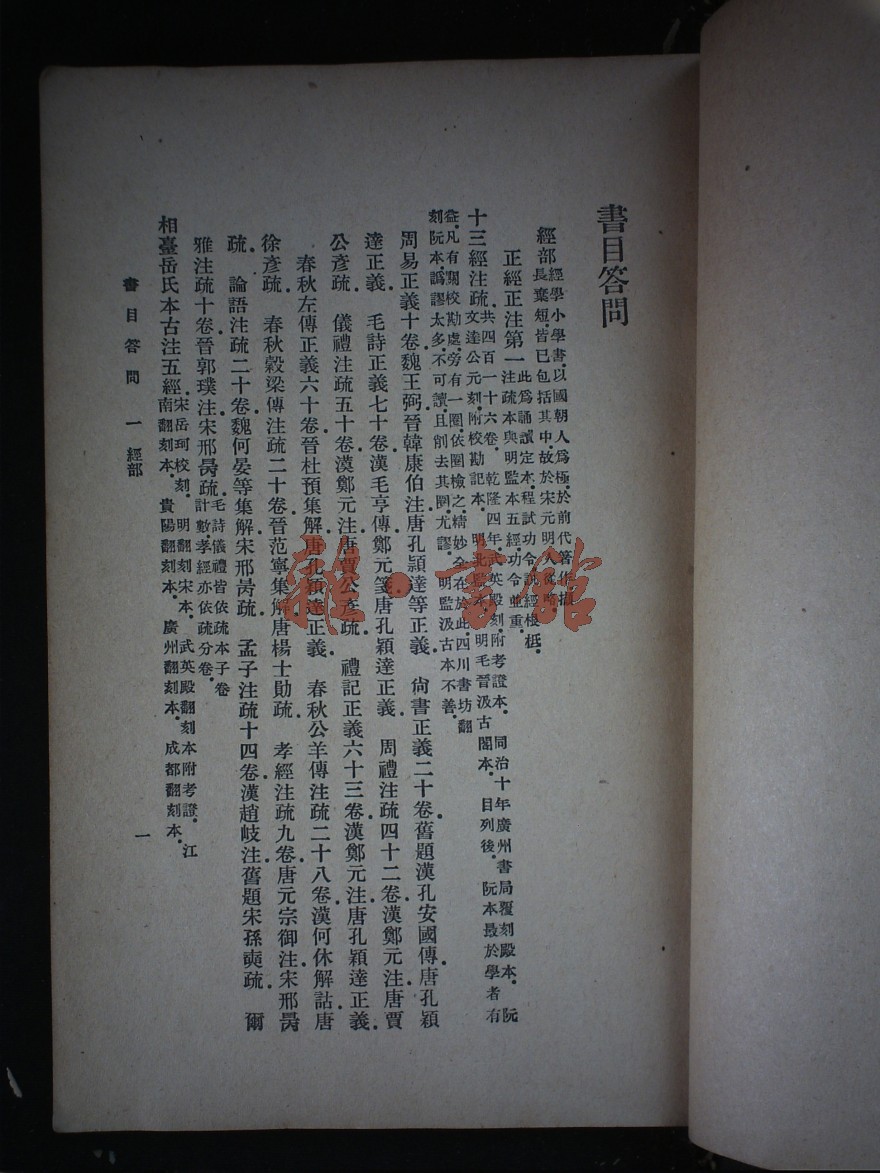 書目答問
經部經學小學書.以國朝人爲極.於前代著作.擷
長棄短.皆已包括其中.故於宋元明人從略.
正經正注第一此爲誦讀定本.程試功令.說經根柢.
注疏本與明監本五經.功令並重.
十三經注疏.共四百一十六卷.乾隆四年武英殿刻附考證本.同治十年廣州書局覆刻殿本.阮
文達公元刻附校勘記本.明北監本.明毛晉汲古閣本.目列後.阮本最於學者有
益.凡有關校勘處.旁有一圈.依圈檢之.精妙全在於此.四川書坊翻
刻阮本.譌謬太多.不可讀.且削去其圈.尤謬.明監汲古本不善.
周易正義十卷.魏王弼.晉韓康伯注.唐孔穎達等正義.尙書正義二十卷.舊題漢孔安國傳.唐孔穎
達正義.毛詩正義七十卷.漢毛亨傳.鄭元箋.唐孔穎達正義.周禮注疏四十二卷.漢鄭元注.唐賈
公彥疏.儀禮注疏五十卷.漢鄭元注.唐賈公彥疏.禮記正義六十三卷.漢鄭元注.唐孔穎達正義.
春秋左傳正義六十卷.晉杜預集解.唐孔穎達正義.春秋公羊傳注疏二十八卷.漢何休解詁.唐
徐彥疏.春秋穀梁傳注疏二十卷.晉范寧集解.唐楊士勛疏.孝經注疏九卷.唐元宗御注.宋邢昺
疏.論語注疏二十卷.魏何晏等集解.宋邢昺疏.孟子注疏十四卷.漢趙岐注.舊題宋孫奭疏.爾
雅注疏十卷.晉郭璞注.宋邢昺疏.毛詩儀禮皆依疏本子卷
計數.孝經亦依疏分卷.
相臺岳氏本古注五經.宋岳珂校刻.明翻刻宋本.武英殿翻刻本附考證.江
南翻刻本.貴陽翻刻本.廣州翻刻本.成都翻刻本.
書目答問 一 經部 一
雜·書館